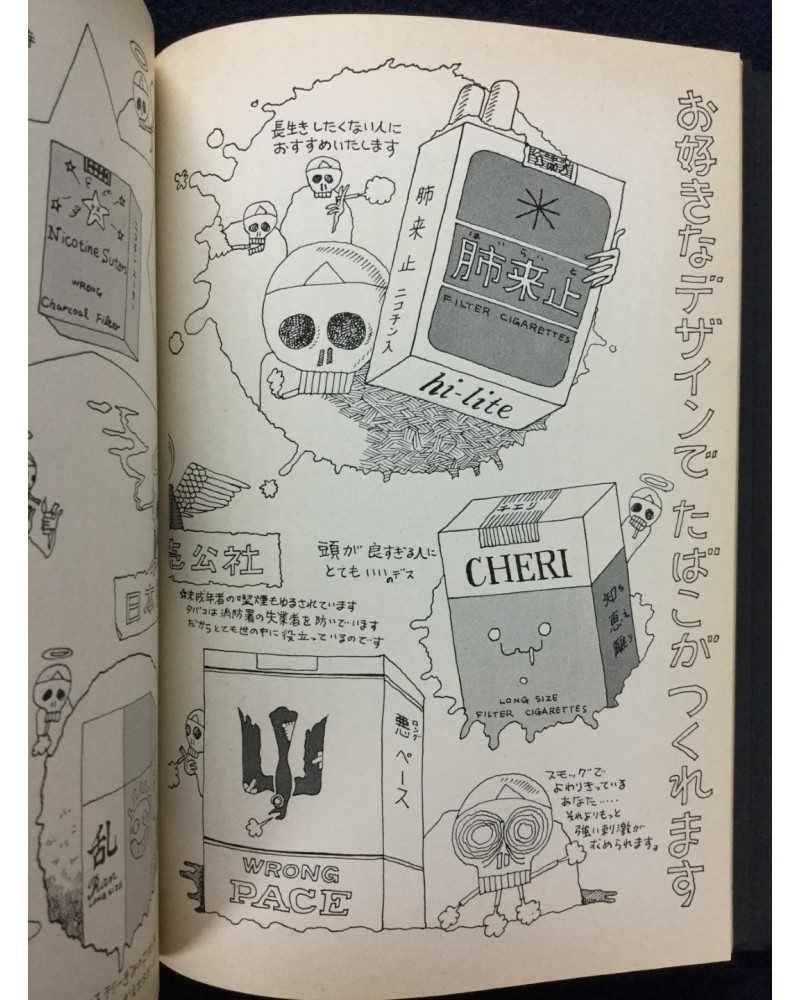 お好きなデザインで たばこが つくれます
長生きしたくない人に
おすすめいたします
肺来止
ニコチン入
はいらいと
肺来止
FILTER CIGARETTES
hi-lite
Nicotine
WRONG
Charcoal Filter
公社
頭が良すぎる人に
とてもいいのデス
☆未成年者の喫煙もゆるされています
タバコは消防署の失業者を防いでいます
だからとても世の中に役立っているのです
チェリー
CHERI
知ち
恵え
LONG SIZE
FILTER CIGARETTES
悪ロング
ペース
WRONG
PACE
スモッグで
よわりきっている
あなた……
それよりもっと
強い刺激が
むめられます。
乱
Ran
LONG SIZE